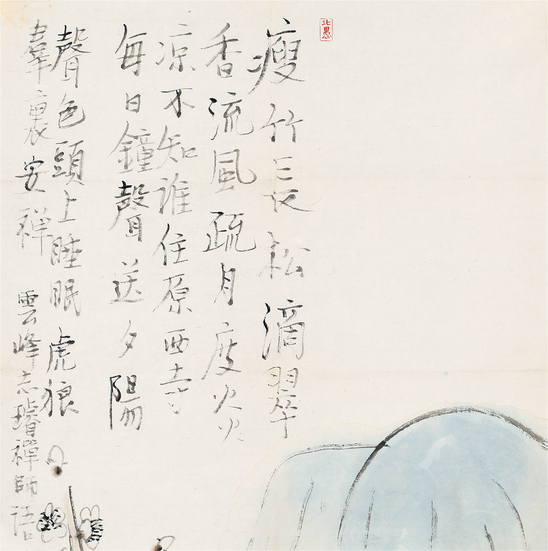 瘦竹長松滴翠
香流風疏月度炎
凉不知誰住原西寺
每日鐘聲送夕陽
聲色頭上睡眠虎狼
羣裏安禪 雲峰志璿禪師語